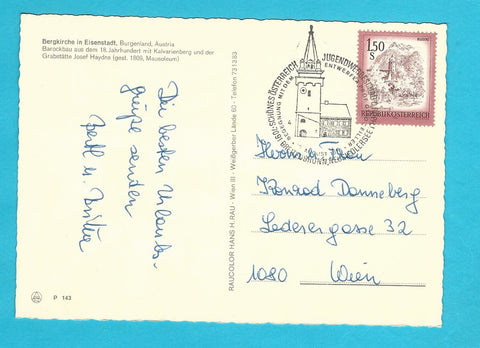 Bergkirche in Eisenstadt, Burgenland, Austria
Barockbau aus dem 18. Jahrhundert mit Kalvarienberg und der
Grabstätte Josef Haydns (gest. 1809, Mausoleum)
Die besten Urlaubs-
grüße senden
P 143
RAUCOLOR HANS H. RAU - Wien III - Weißgerber Lände 60 - Telefon 731383
SCHÖNES ÖSTERREICH
JUGENDWE
BEGEGNUNG MIT DEM
1.50
S
REPUBLIK ÖSTERREICH
Herrn u. Frau
Konrad Donneberg
Lederergasse 32
1080 Wien